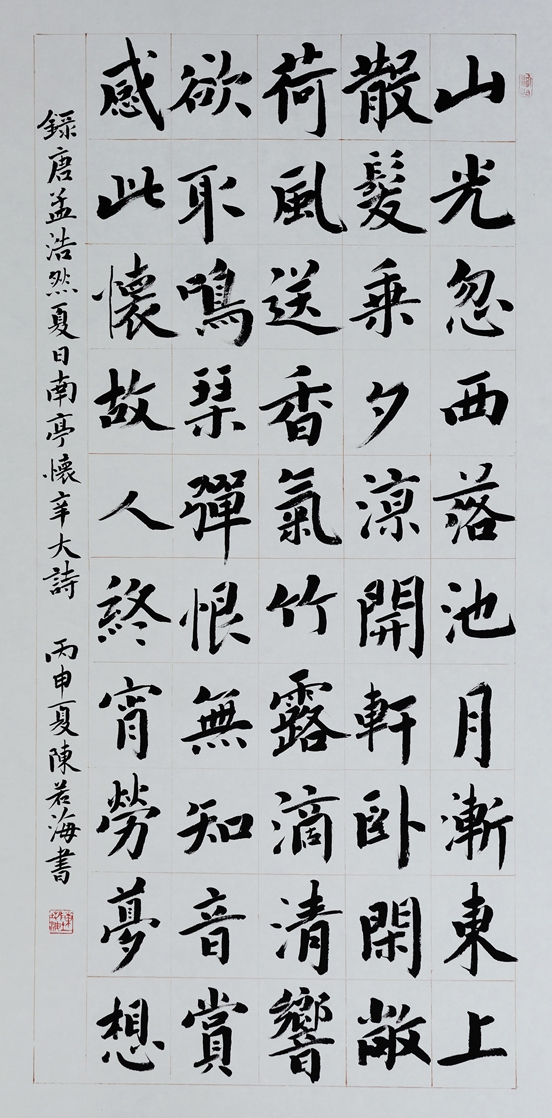 山光忽西落池月漸東上
散髮乗夕涼開軒卧閑敞
荷風送香氣竹露滴清響
欲取鳴琴彈恨無知音賞
感此懷故人終宵勞夢想
錄唐孟浩然夏日南亭懷辛大詩 丙申夏陳若海書